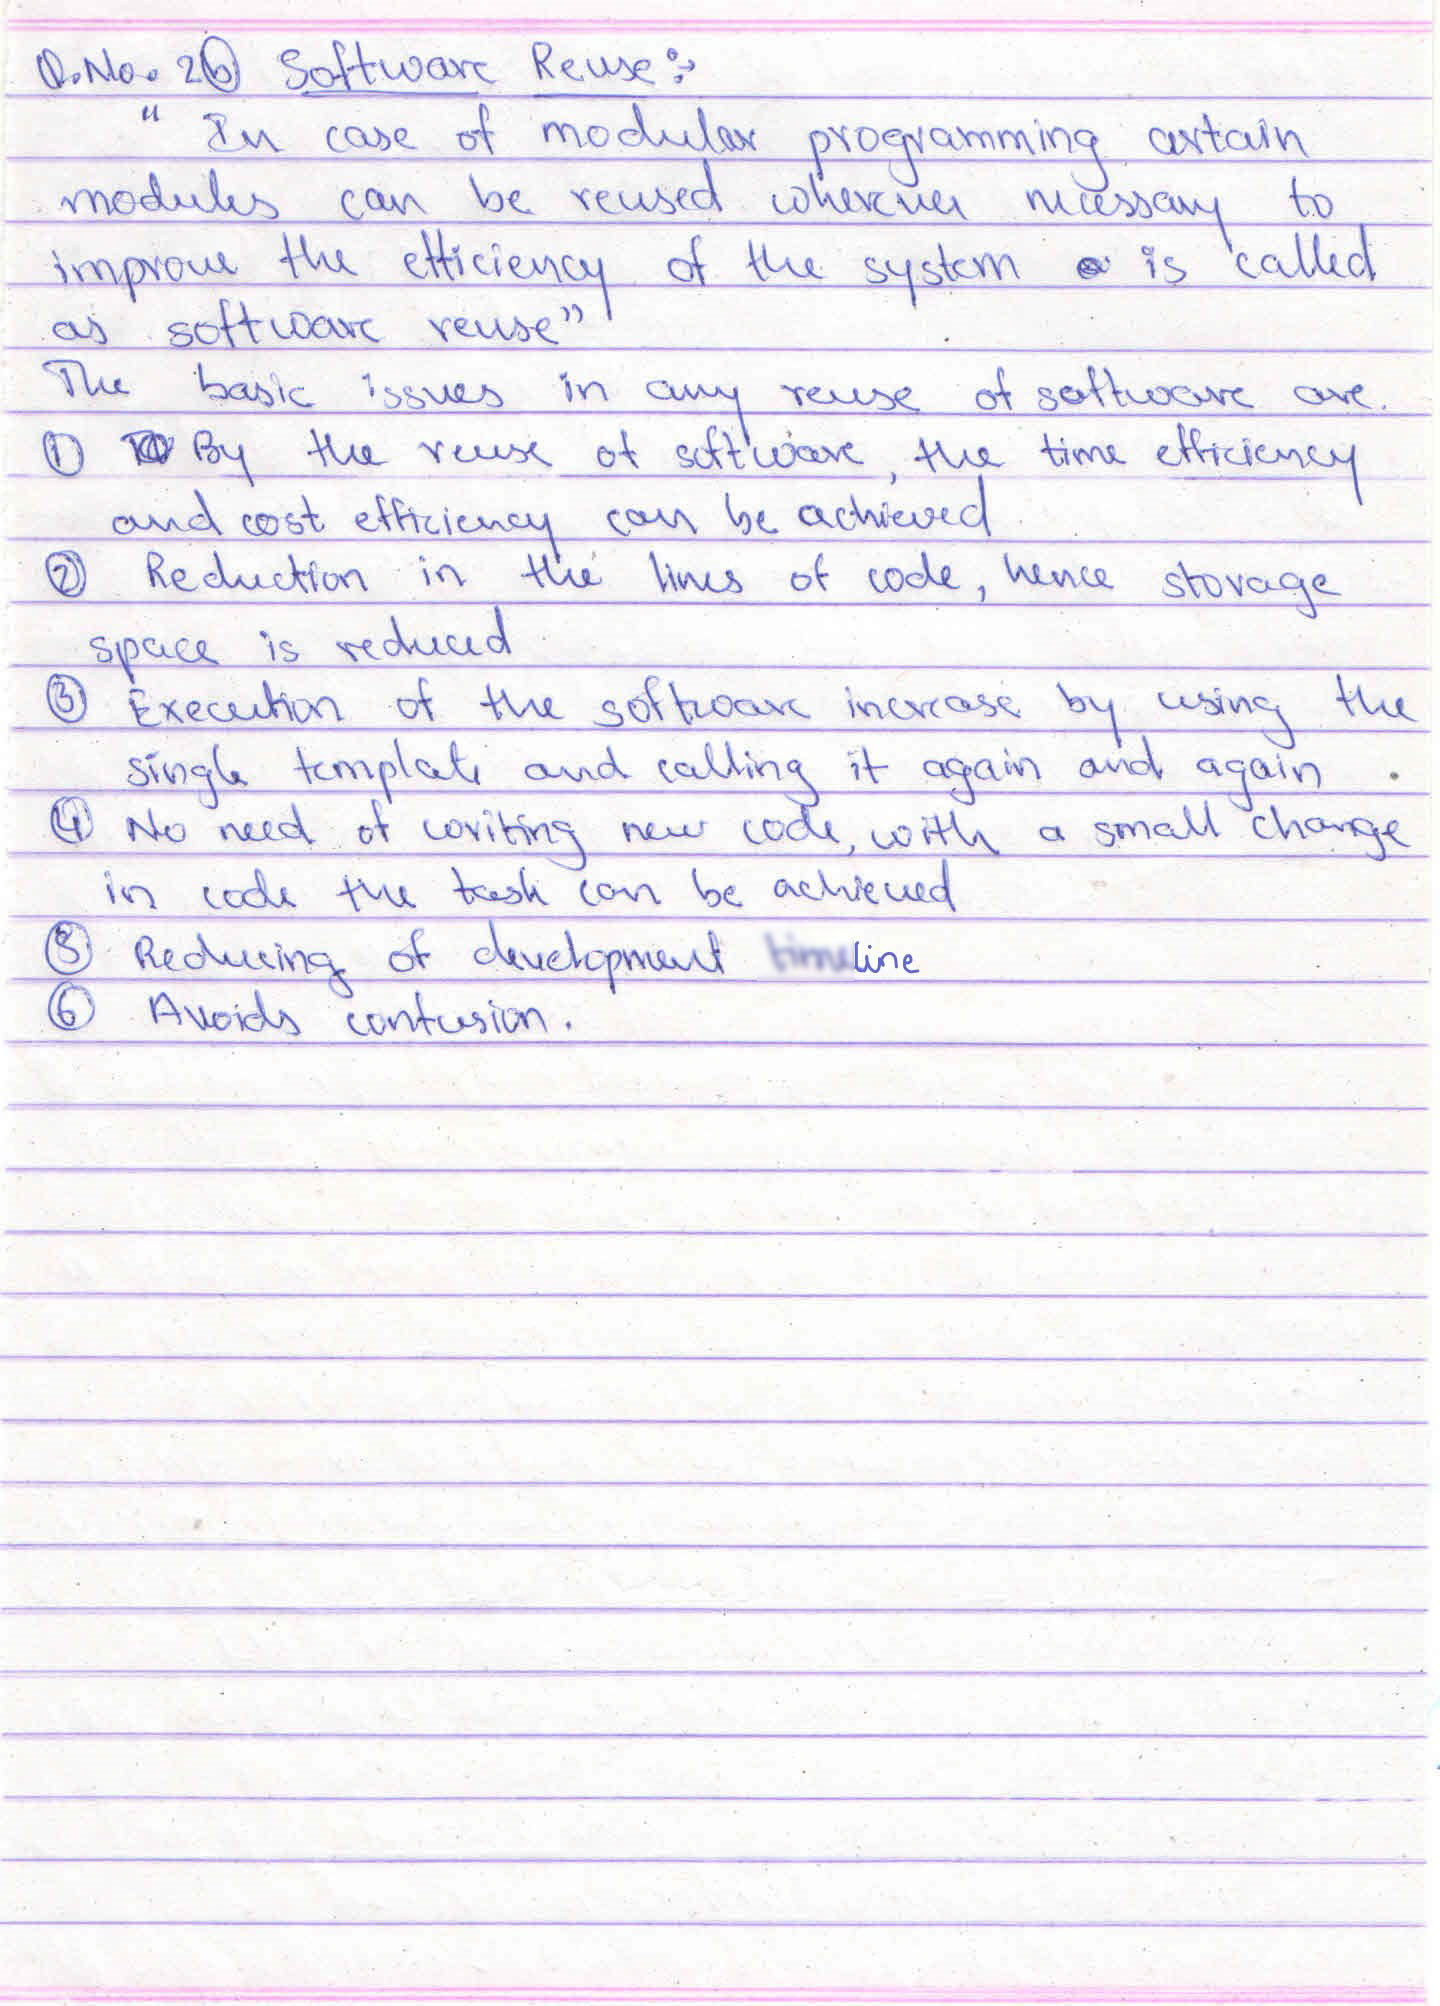 Q.No. 2(b) Software Reuse:-
" In case of modular programming certain
modules can be reused wherever necessary to
improve the efficiency of the system is called
as software reuse"
The basic issues in any reuse of software are.
① By the reuse of software, the time efficiency
and cost efficiency can be achieved
② Reduction in the lines of code, hence storage
space is reduced
③ Execution of the software increase by using the
single template and calling it again and again.
④ No need of writing new code, with a small change
in code the task can be achieved
⑤ Reducing of development line
⑥ Avoids confusion.